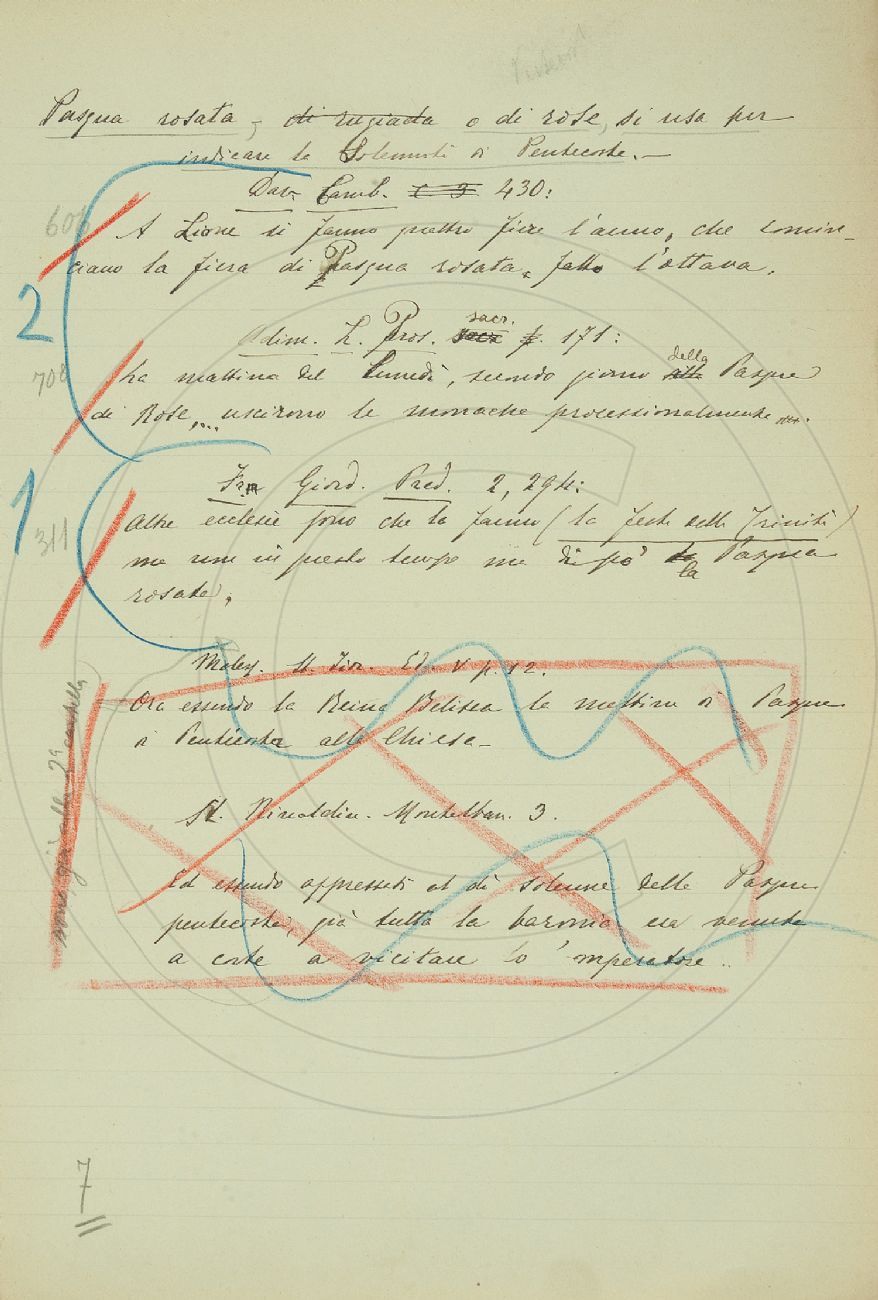 Pasqua rosata, di rugiada o di rose, si usa per
indicare la Solennità di Pentecoste. —
Dav. Camb. 430:
606
A Lione si fanno quattro fiere l'anno, che comin-
ciano la fiera di Pasqua rosata, fatto l'ottava.
2
Adim. L. Pros. sacr. 171:
708
La mattina del Lunedì, secondo giorno della Pasqua
di Rose,... uscirono le monache processionalmente ...
1
Fr. Giord. Pred. 2, 294:
311
Altre ecclesie sono che la fanno (la festa della Trinità)
ma non in questo tempo ma di po' la Pasqua
rosata.
St. Fior. Ed. V p. 12.
Ora essendo la Reina Belisea la mattina di Pasqua
di Pentecosta alla Chiesa —
St. Rinaldin. Montalban. 3.
Ed essendo appressati al dì solenne della Pasqua
pentecosta, già tutta la baronia era venuta
a corte a vicitare lo 'mperatore ..
7